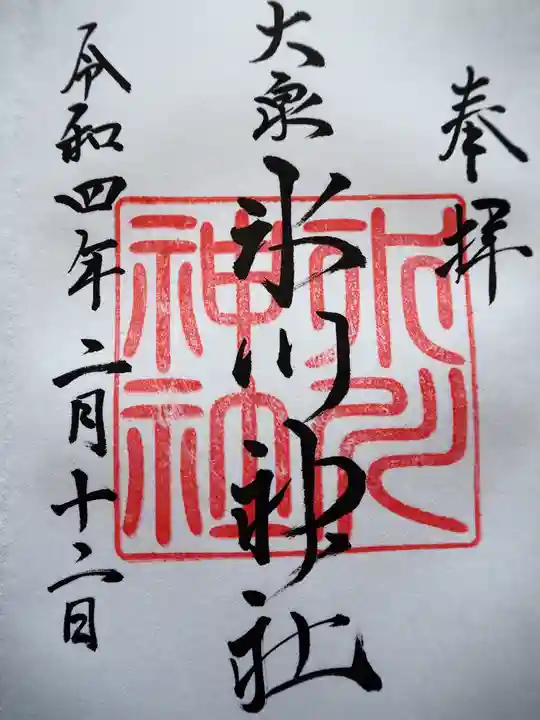 奉拝
大泉
氷川神社
氷川
神社
令和四年二月十二日